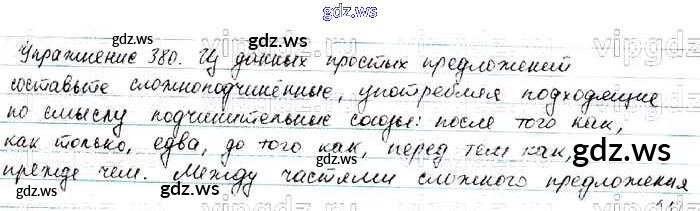 gdz.ws
Упражнение 380. Из данных простых предложений
составьте сложноподчинённые, употребляя подходящие
по смыслу подчинительные союзы: после того как,
как только, едва, до того как, перед тем как,
прежде чем. Между частями сложного предложения